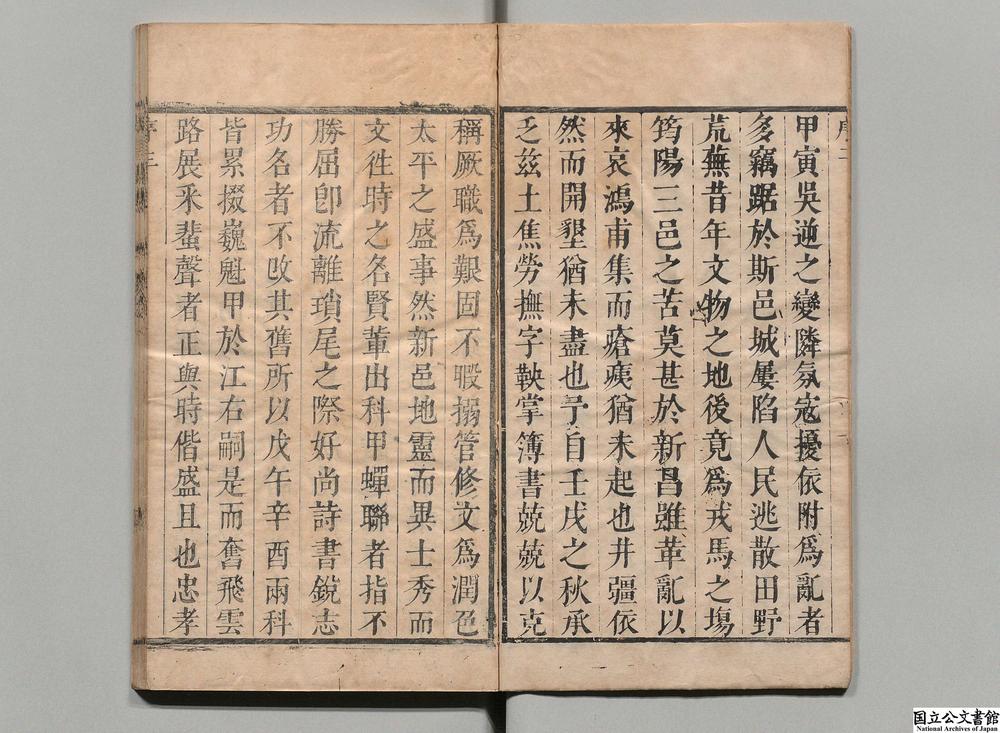 甲寅吳逆之變隣氛宼擾依附爲亂者
多竊踞於斯邑城屢陷人民逃散田野
荒蕪昔年文物之地後竟爲戎馬之塲
筠陽三邑之苦莫甚於新昌雖革亂以
來哀鴻甫集而瘡痍猶未起也井疆依
然而開墾猶未盡也予自壬戌之秋承
乏兹土焦勞撫字鞅掌簿書兢兢以克
稱厥職爲艱固不暇搦管修文爲潤色
太平之盛事然新邑地靈而異士秀而
文徃時之名賢軰出科甲蟬聯者指不
勝屈卽流離瑣尾之際好尚詩書銳志
功名者不攺其舊所以戊午辛酉兩科
皆累掇巍魁甲於江右嗣是而奮飛雲
路展釆蜚聲者正與時偕盛且也忠孝
序三
国立公文書館
National Archives of Japan